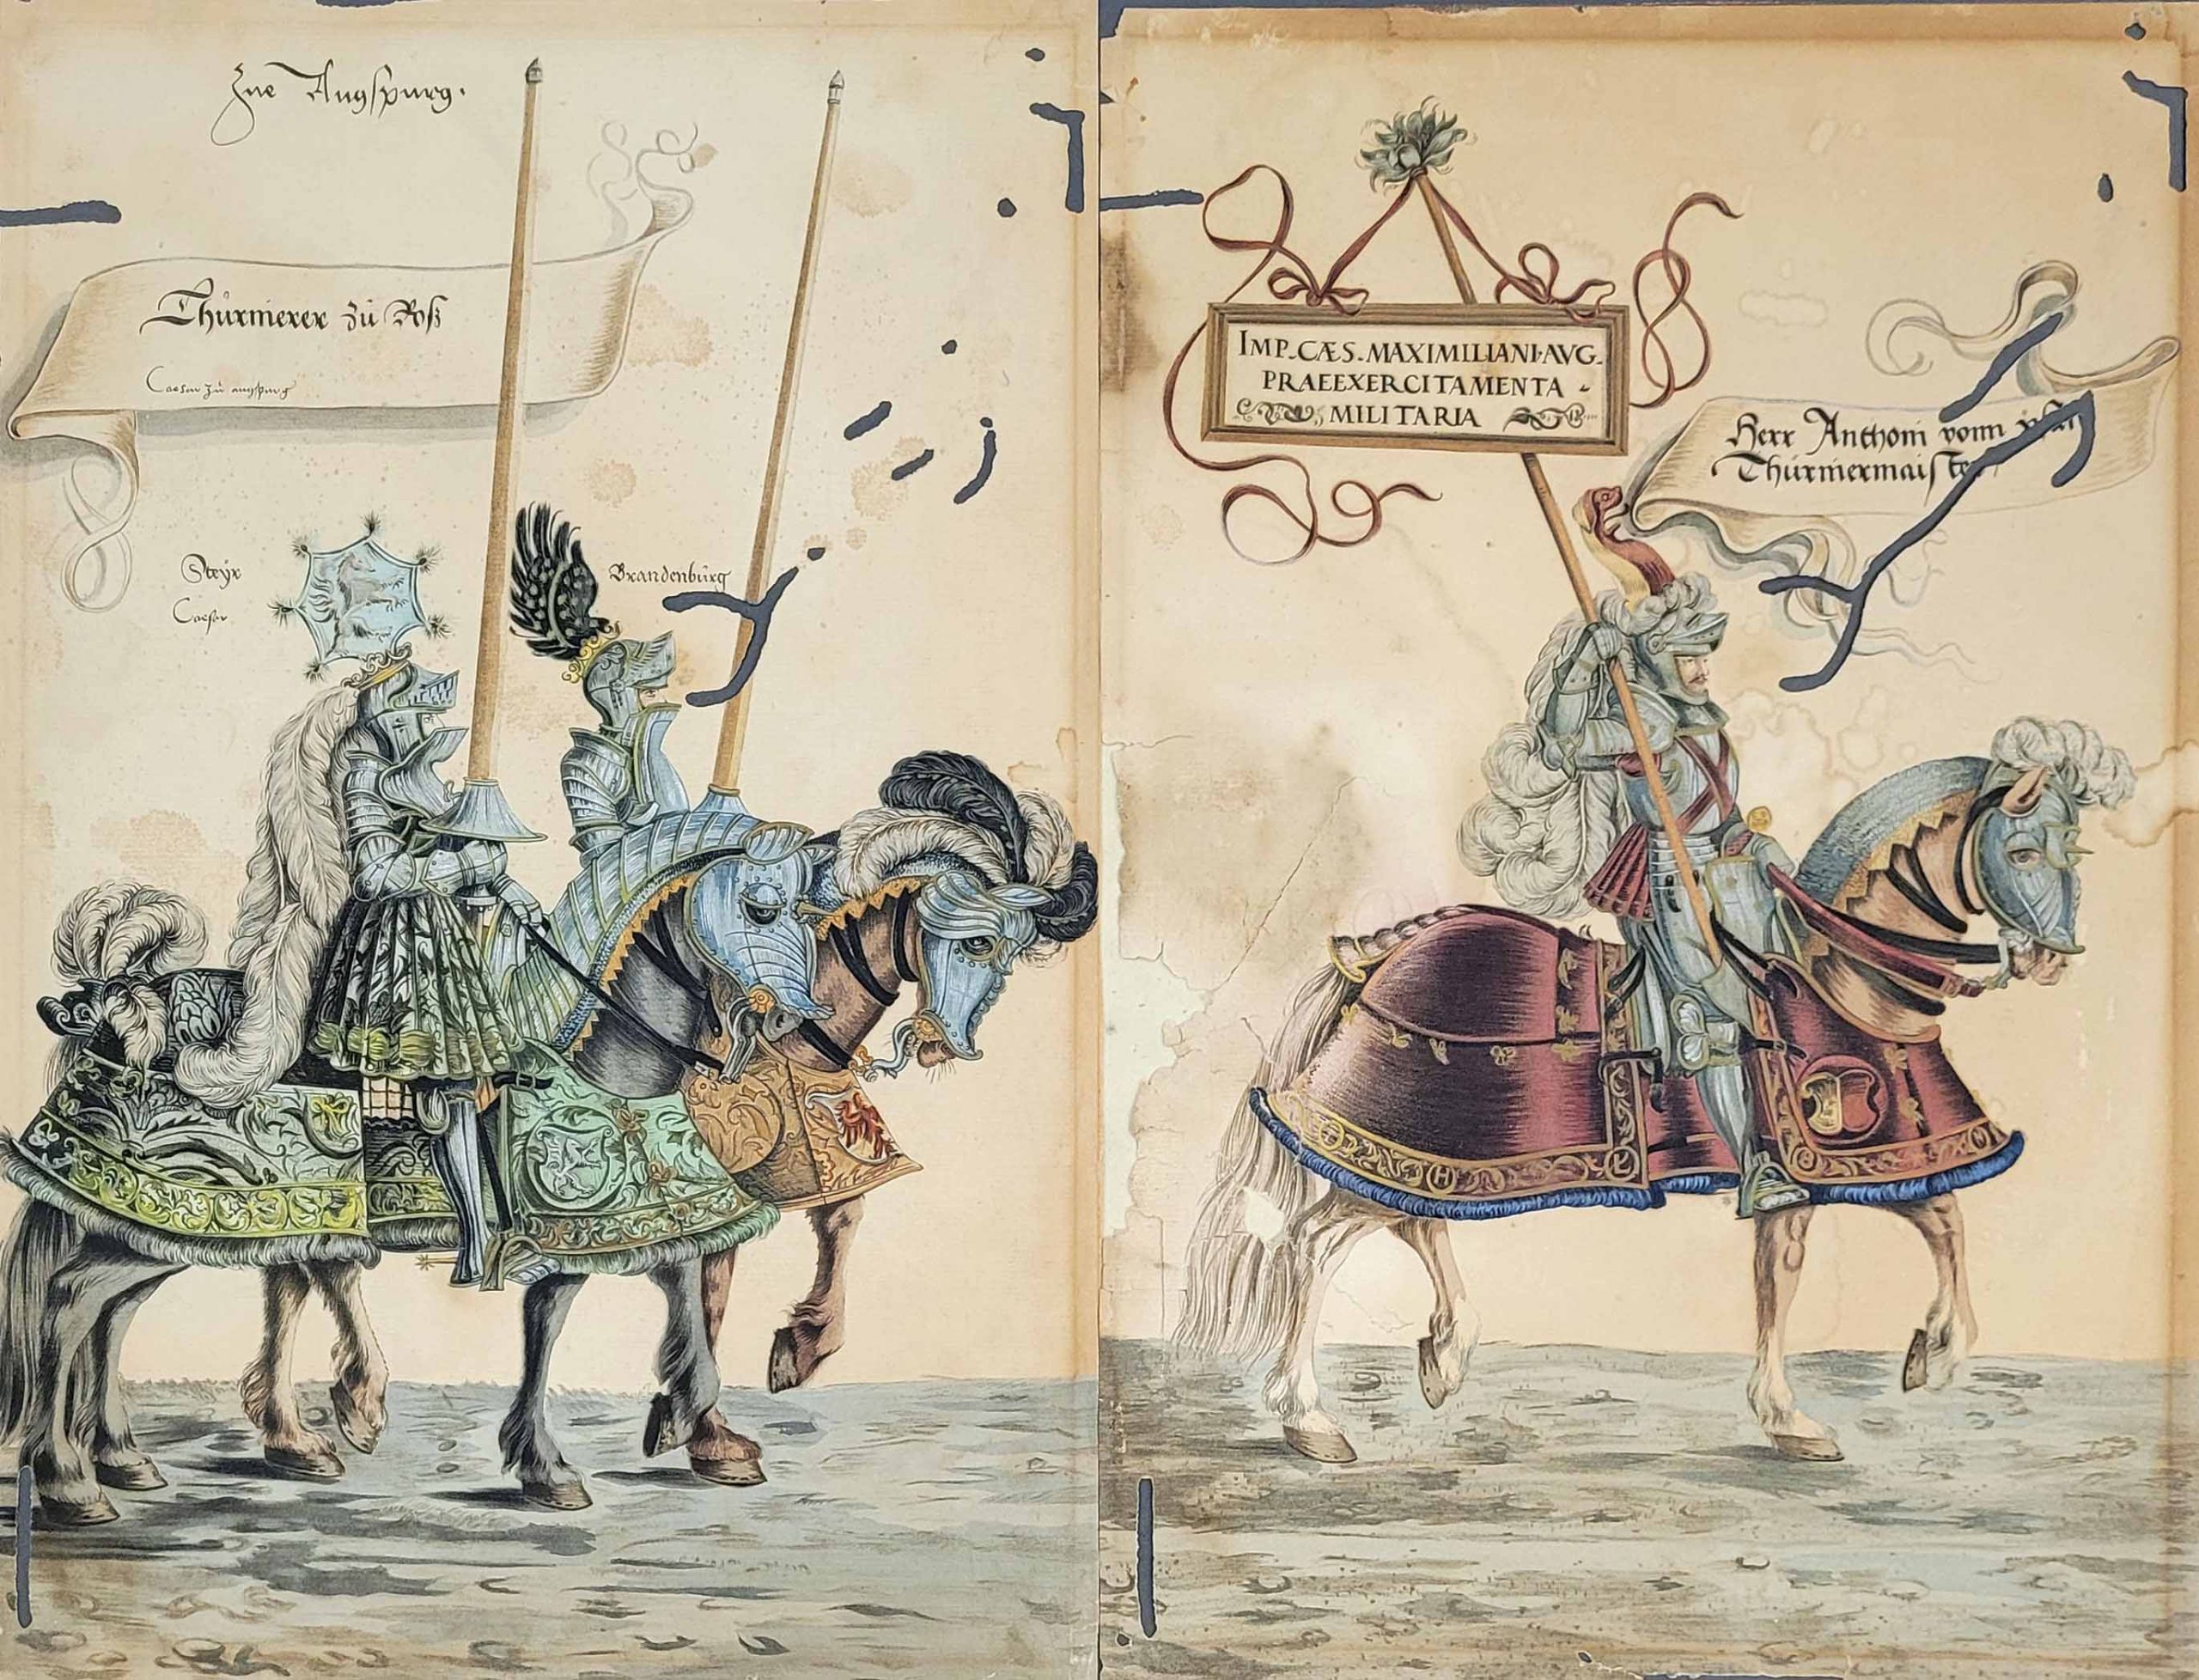 Zue Augspurg.
Thürnierer zü Roß
Caesar zu augspurg
Steyr
Caesar
Brandenbürg
IMP. CÆS. MAXIMILIANI·AVG.
PRAEEXERCITAMENTA
MILITARIA
Herr Anthoni vonn
Thürniermaister